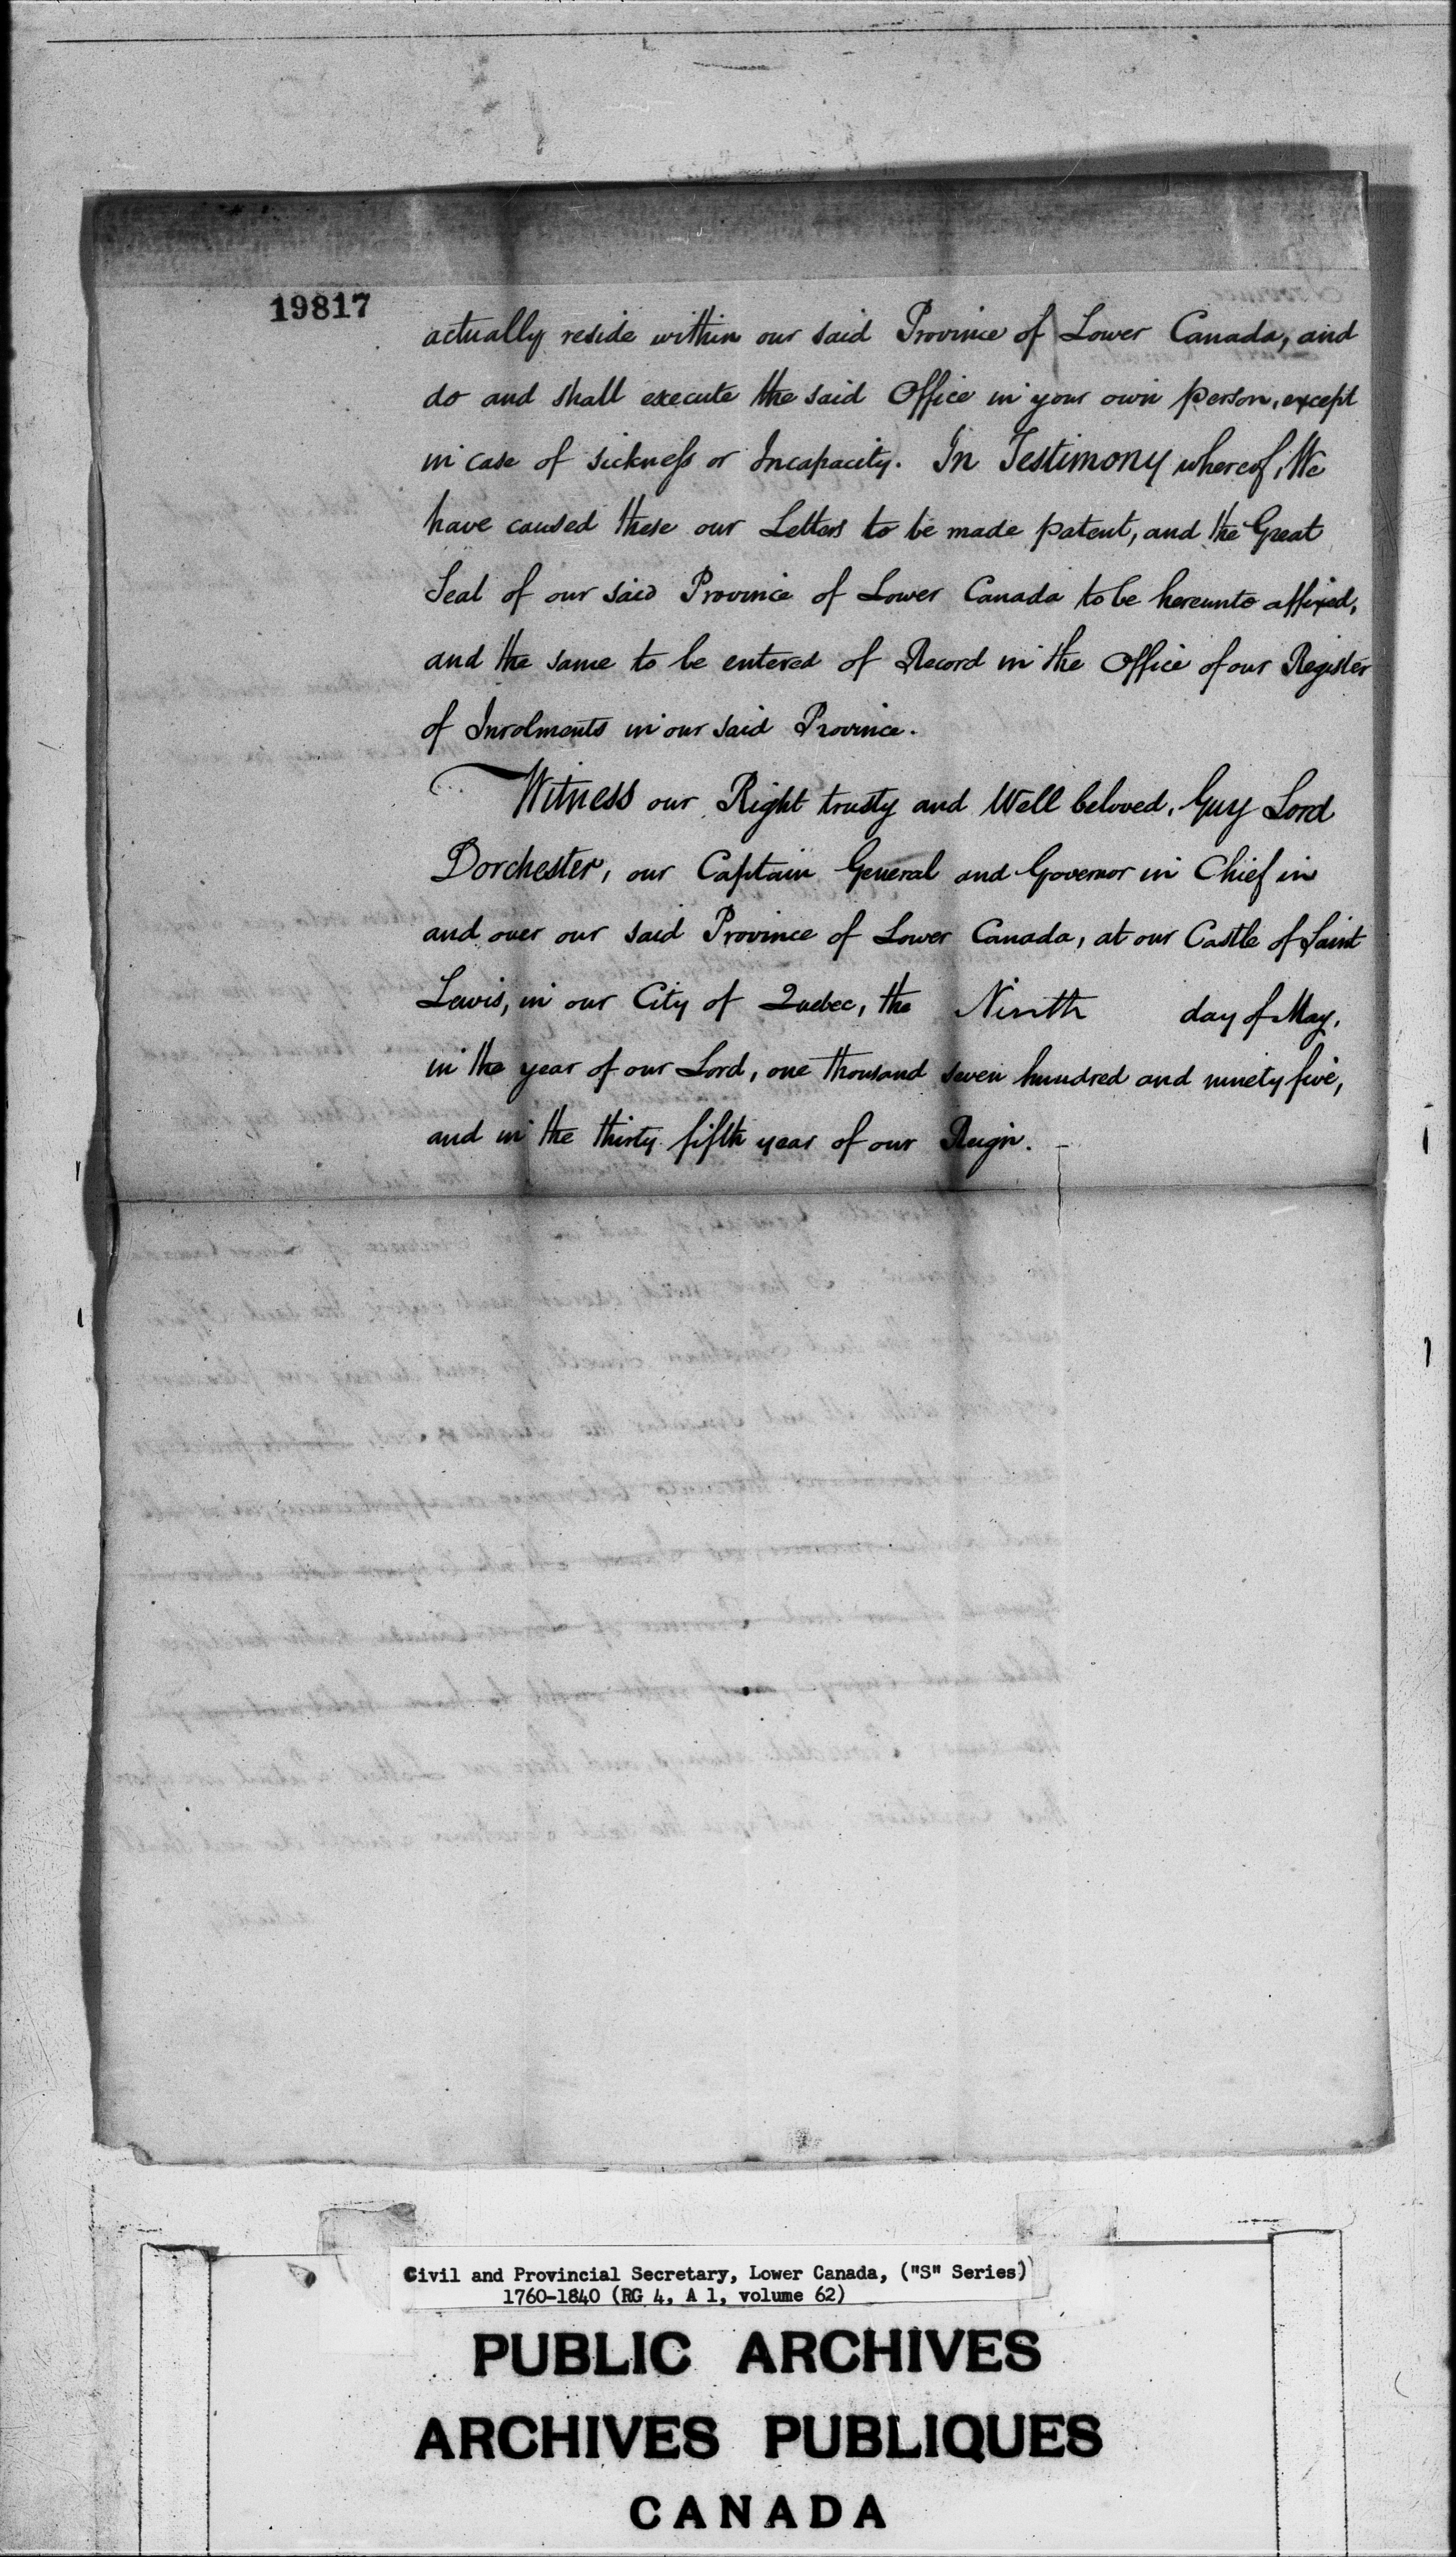 19817
actually reside within our said Province of Lower Canada, and
do and shall execute the said Office in your own person, except
in case of sickness or Incapacity. In Testimony whereof, We
have caused these our Letters to be made patent, and the Great
Seal of our said Province of Lower Canada to be hereunto affixed,
and the same to be entered of Record in the Office of our Register
of Inrolments in our said Province.
Witness our Right trusty and Well beloved, Guy Lord
Dorchester, our Captain General and Governor in Chief in
and over our said Province of Lower Canada, at our Castle of Saint
Lewis, in our City of Quebec, the Ninth day of May,
in the year of our Lord, one thousand seven hundred and ninety five,
and in the thirty fifth year of our Reign.
Civil and Provincial Secretary, Lower Canada, ("S" Series)
1760-1840 (RG 4, A 1, volume 62)
PUBLIC ARCHIVES
ARCHIVES PUBLIQUES
CANADA